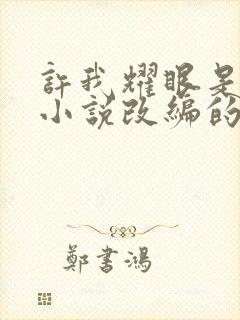 許我耀眼是
小說改編的
鄭書鴻